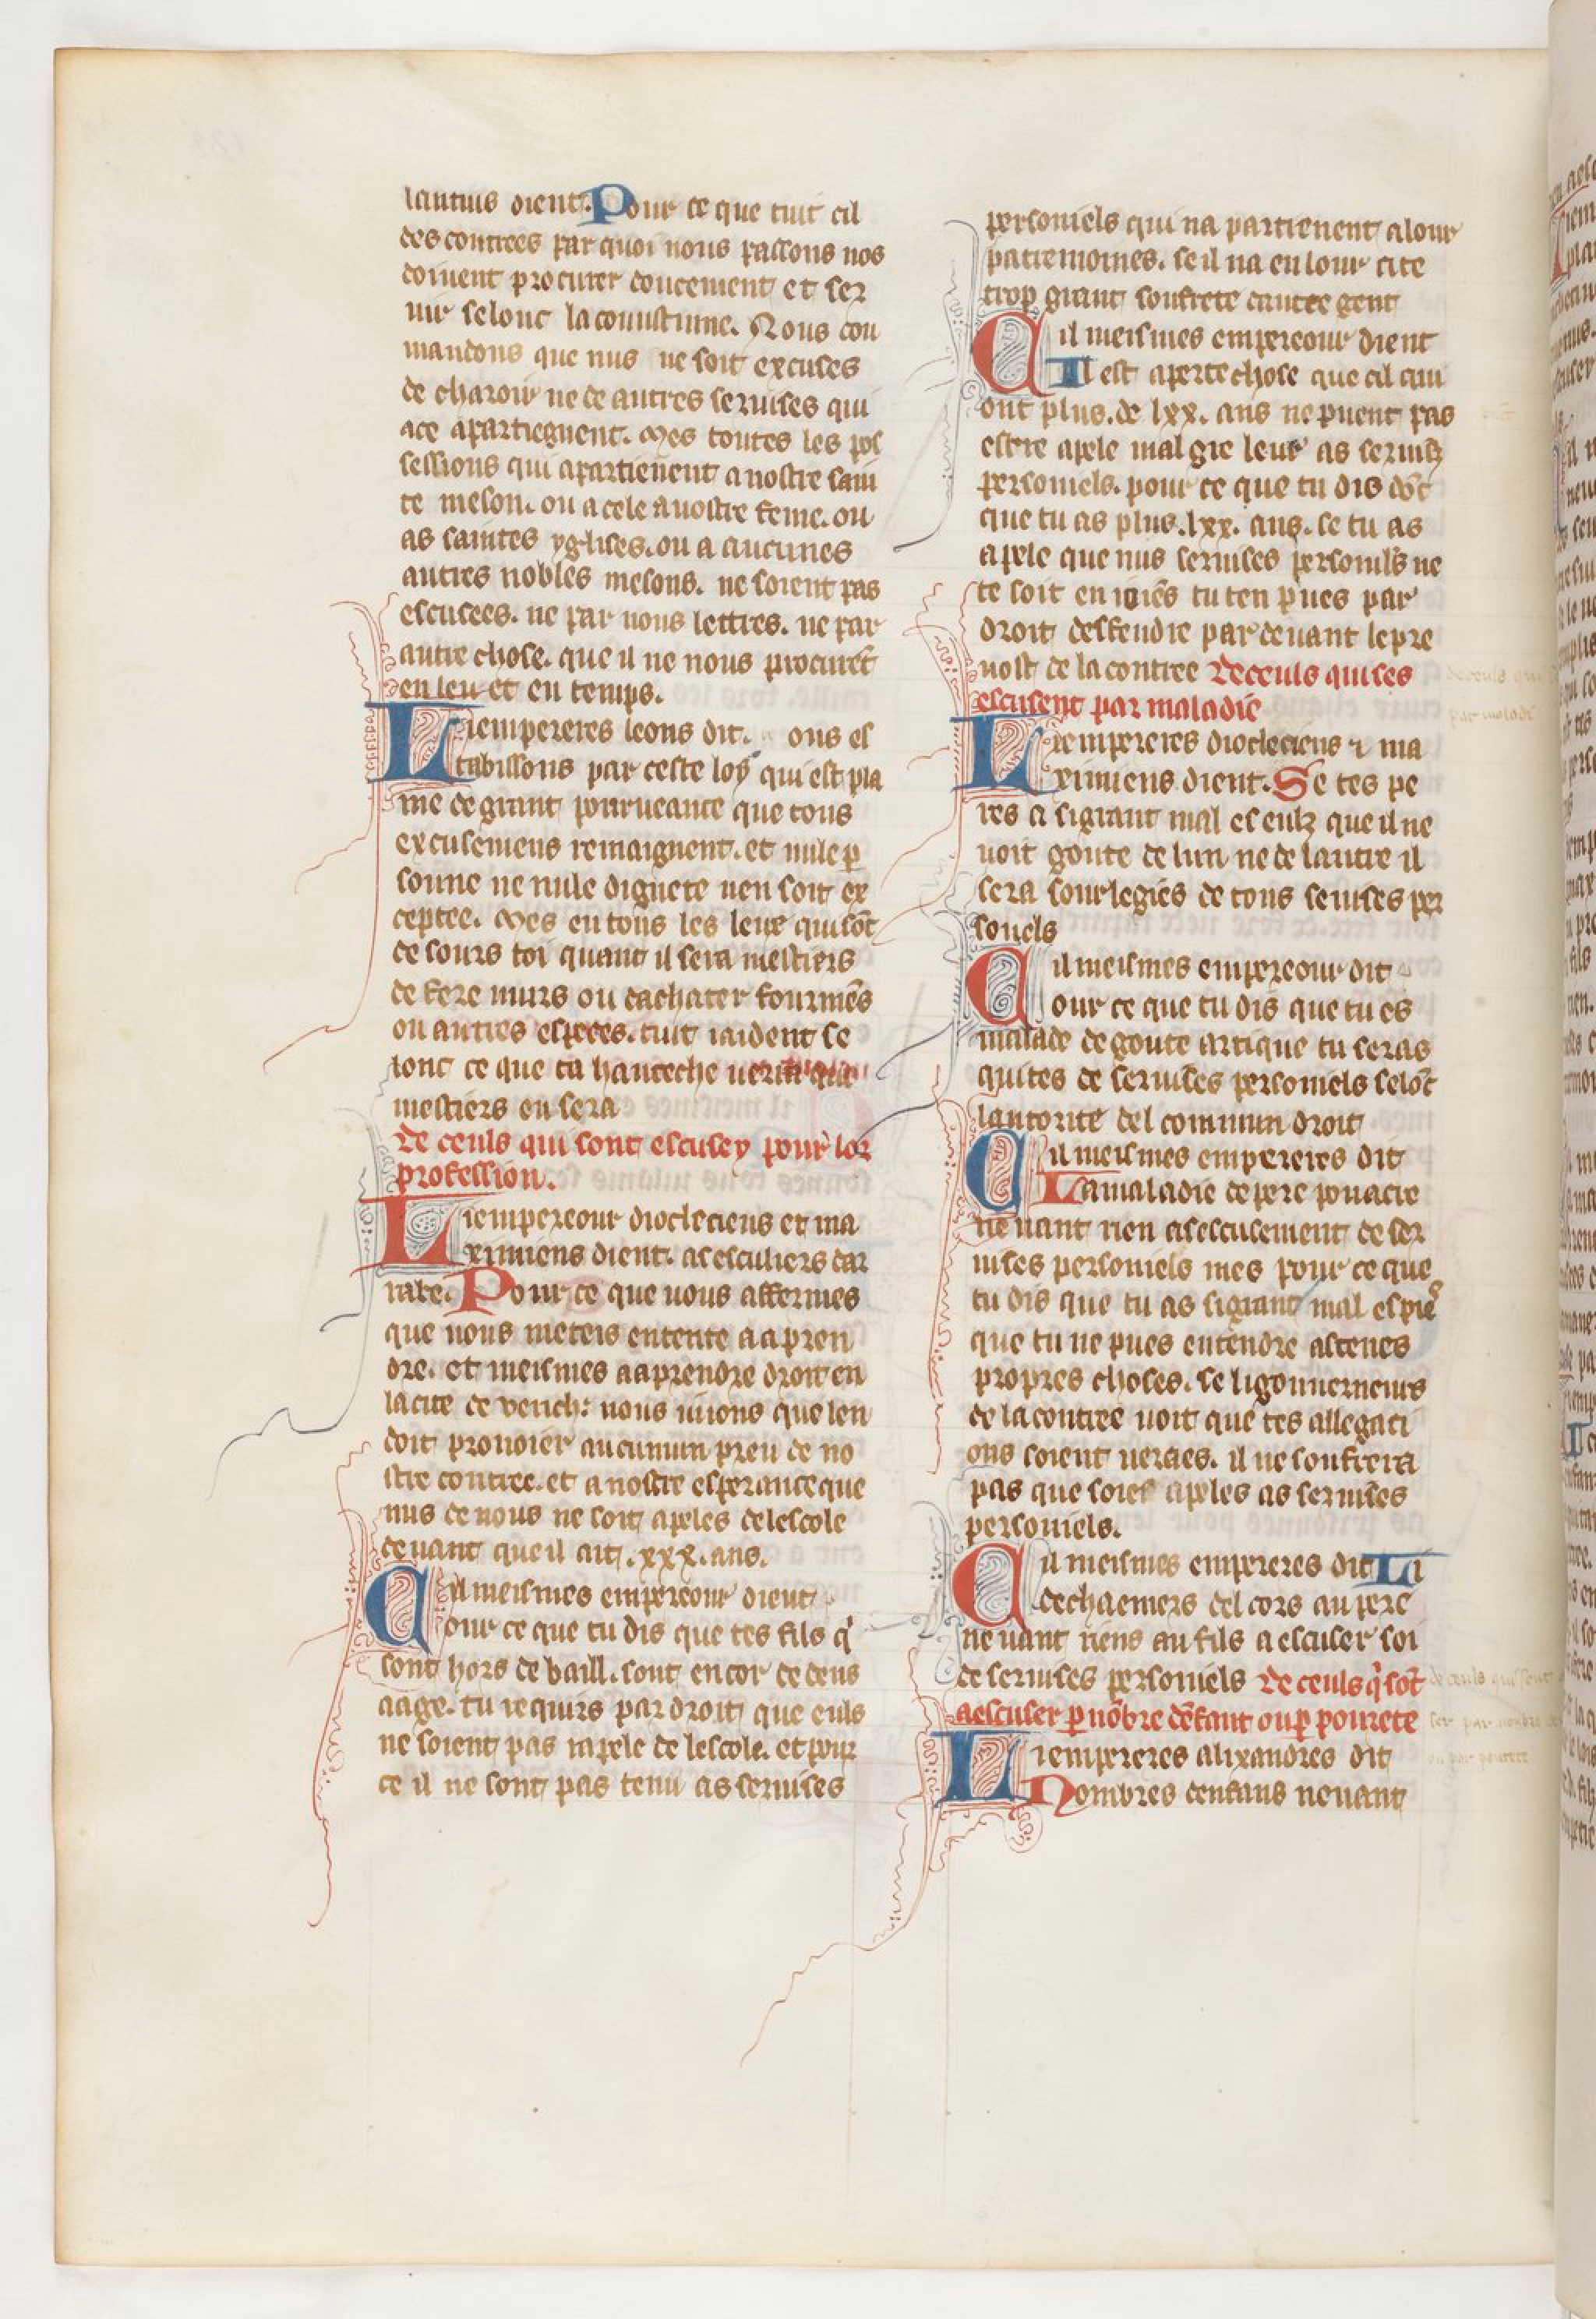 lantins dient. Pour ce que tuit cil
des contrees par quoi nous passons nos
doiuent procurer doucement et ser
uir selonc la coustume. Nous con
mandons que nus ne soit excuses
de charoir ne de autres seruises qui
ace apartiegnent. Mes toutes les pos
sessions qui apartienent a nostre sain
te meson. ou a cele a nostre feme. ou
as saintes yglises. ou a aucunes
autres nobles mesons. ne soient pas
escusees. ne par nous lettres. ne par
autre chose. que il ne nous procurēt
en leu et en temps.
Li empereres leons dit. ous es
tabissons par ceste loy qui est pla
ine de grant pourueance que tous
excusemens remaignent. et nule p̲
sonne ne nule dignete nen soit ex
ceptee. Mes en tous les leus qui sōt
de sours toi quant il sera mestiers
de fere murs ou dachater fourmēs
ou autres especes. tuit iaident se
lonc ce que ta hautece uerra que
mestiers en sera
De ceuls qui sont escusey pour lor
profession.
Li empereour diocleciens et ma
ximiens dient. as esculiers dar
rabe. Pour ce que uous affermes
que uous meteis entente a apren
dre. et meismes a aprendre droit en
la cite de verich: nous iuions que len
doit prouoier au cumun preu de no
stre contree. et a nostre esperance que
nus de uous ne soit apeles de lescole
deuant que il ait .xxx. ans.
Cil meismes empereour dient
our ce que tu dis que tes fils q̇
sont hors de baill. sont encor dedens
aage. tu requirs par droit que euls
ne soient pas rapele de lescole. et pour
ce il ne sont pas tenu as seruises
personiels qui na partienent a lour
patremoines. se il na en lour cite
trop grant soufrete dautre gent
Cil meismes empereour dient
Il est aperte chose que cil qui
ont plus. de lxx. ans ne puent pas
estre apele mal gre leur as seruisz
personiels. pour ce que tu dis dōc
que tu as plus .lxx. ans. se tu as
apele que nus seruises personils ne
te soit en ioīes tu ten pues par
droit deffendre par deuant le pre
uost de la contree De ceuls qui ses
escusent par maladie
Li empereres diocleciens ⁊ ma
ximiens dient. Se tes pe
res a si grant mal es eulz que il ne
uoit goute de lun ne de lautre il
sera sourlegies de tous seruises per
sonels
Cil meismes empereour dit
our ce que tu dis que tu es
malade de goute artique tu seras
quites de seruises personiels selōc
lautorite del commun droit
Cil meismes empereres dit
La maladie de pere pouacre
ne uant rien as escusement de ser
uises personiels mes pour ce que
tu dis que tu as si grant mal es pies
que tu ne pues entendre as tenes
propres choses. se li gouuerneurs
de la contree uoit que tes allegati
ons soient ueraies. il ne soufrera
pas que soies apeles as seruises
personiels.
Cil meismes empereres dit Li
dechaemers del cors au pere
ne uant riens au fils a escuser soi
de seruises personiels De ceuls q̇ sōt
a escuser p̲ nōbre dēfant ou p̲ pourete
Li empereres alixandres dit
Nombres denfans ne uant